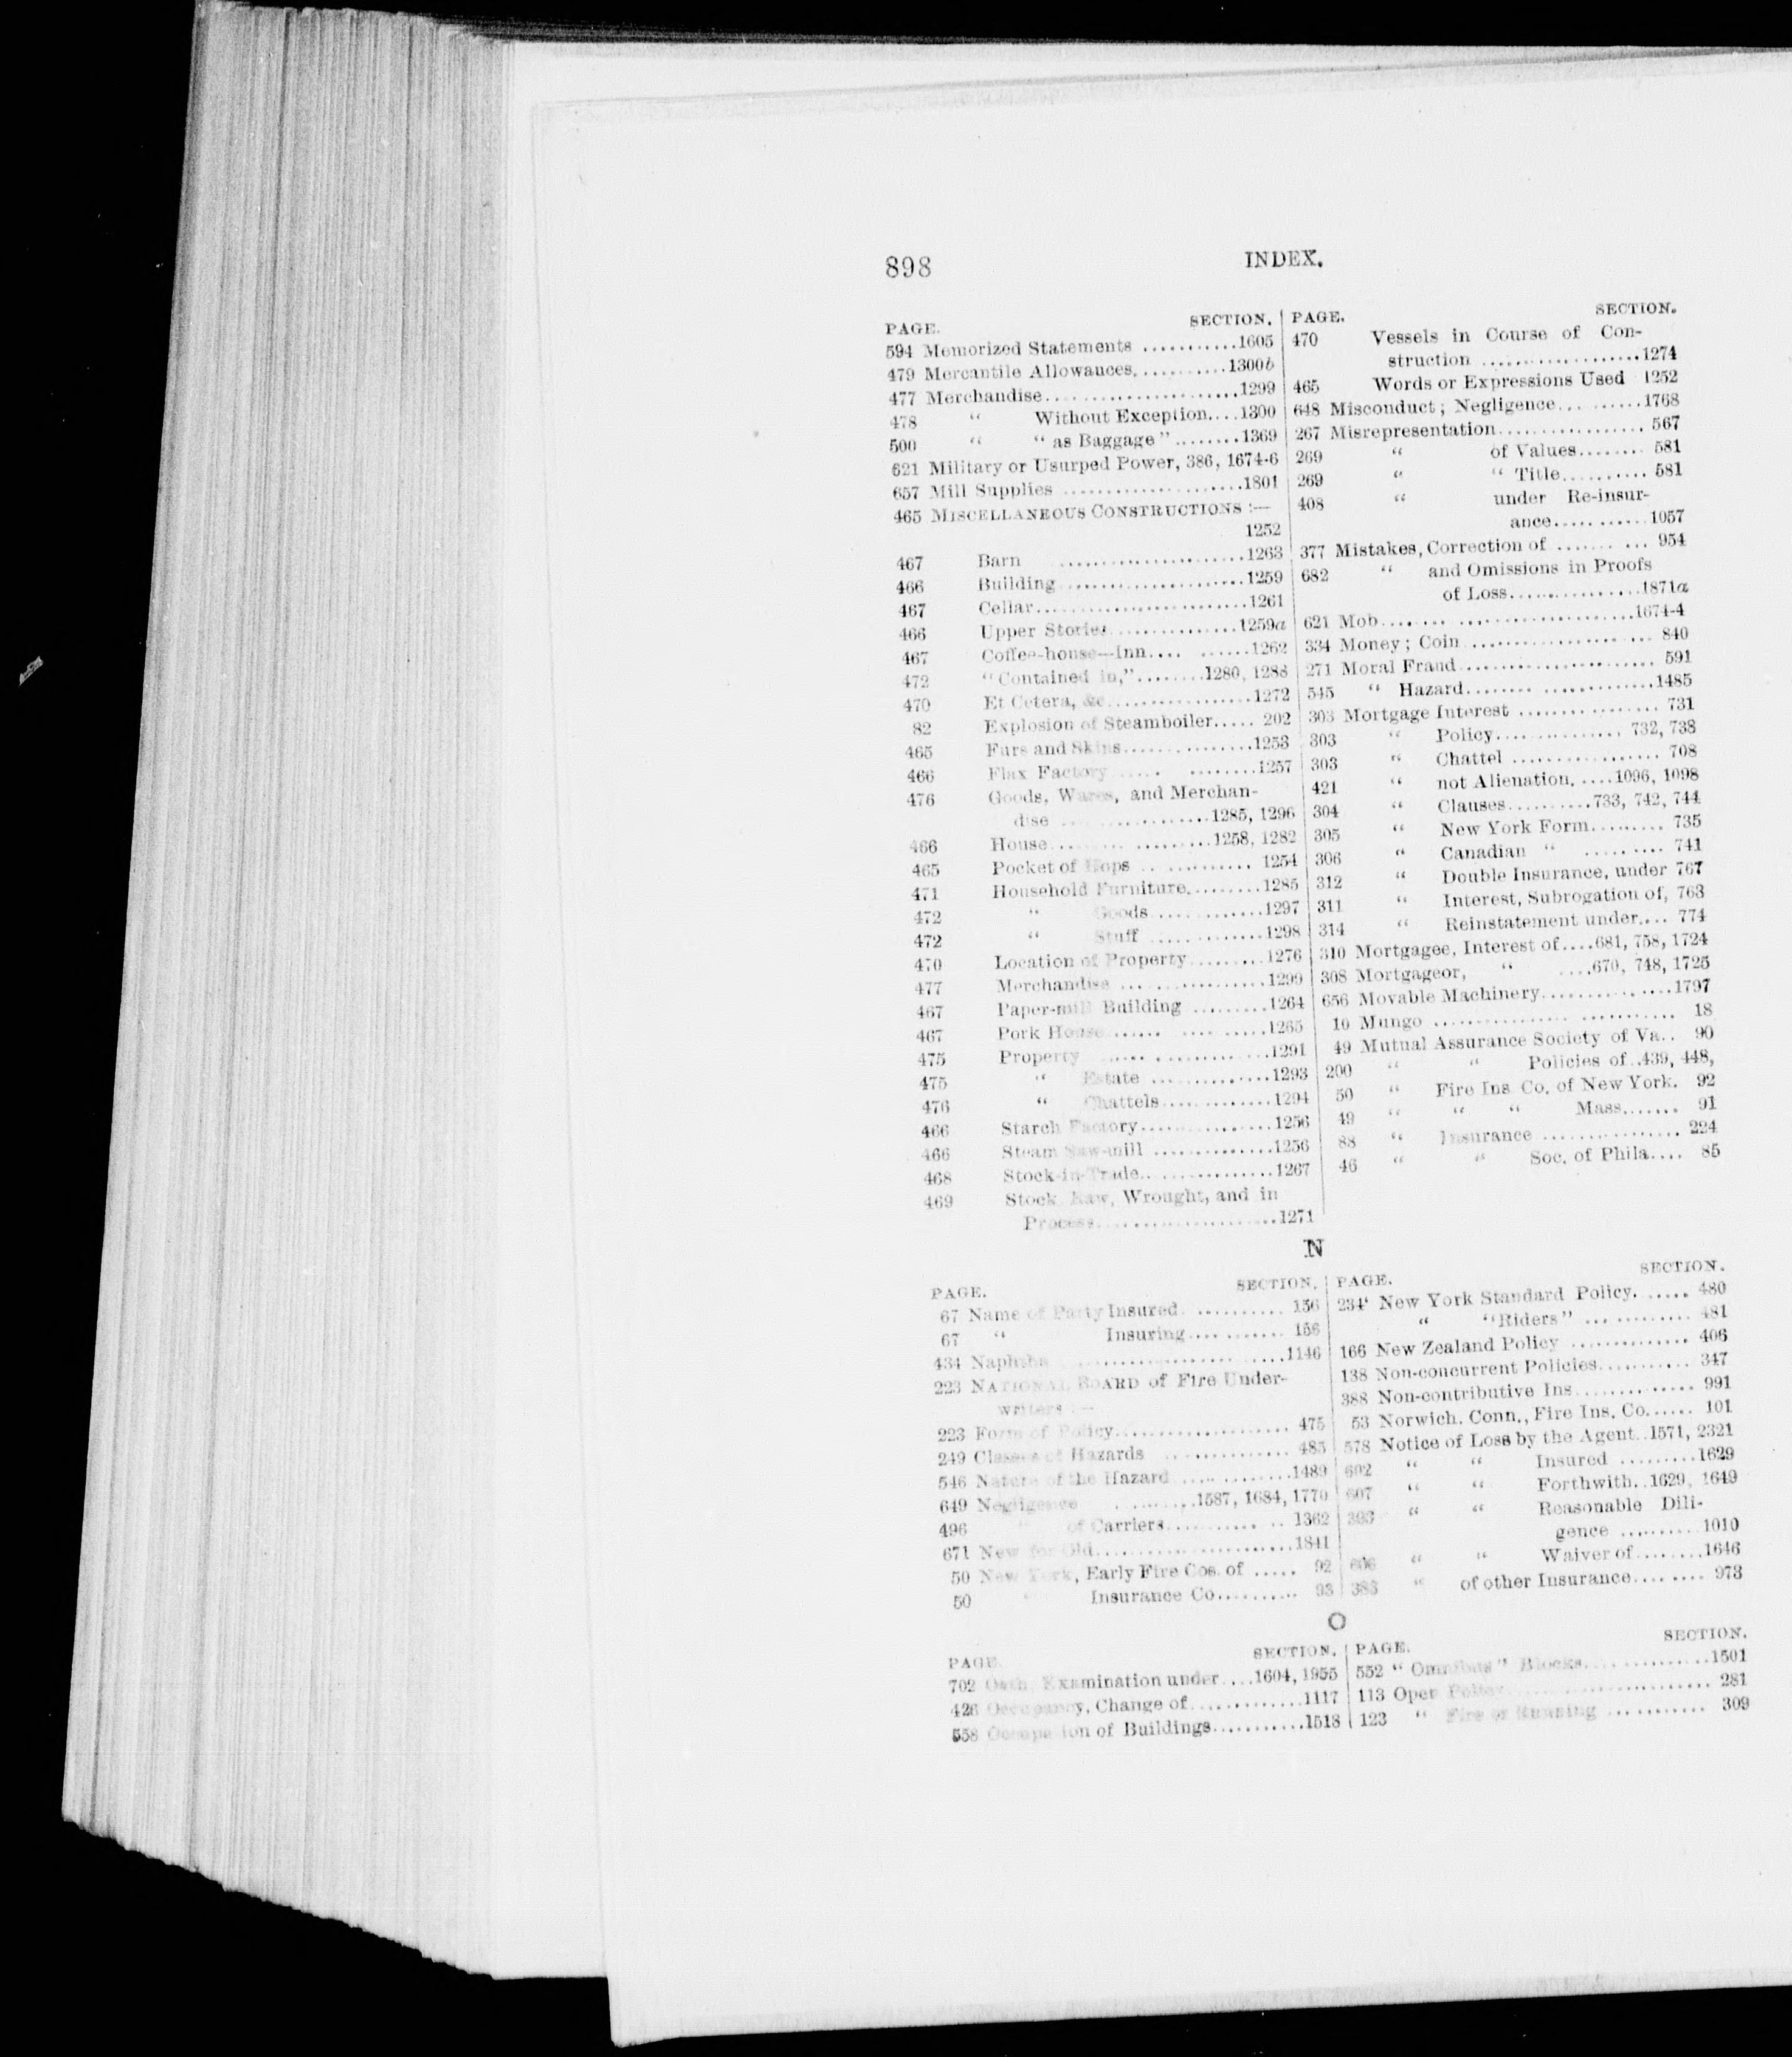 898
INDEX.
PAGE. SECTION.
594 Memorized Statements ...........1605
479 Mercantile Allowances...........1300b
477 Merchandise.......................1299
478 “ Without Exception....1300
500 “ “ as Baggage”........1369
621 Military or Usurped Power, 386, 1674-6
657 Mill Supplies .....................1801
465 MISCELLANEOUS CONSTRUCTIONS :—
1252
467 Barn ......................1263
466 Building......................1259
467 Cellar.........................1261
466 Upper Stories...............1259a
467 Coffee-house—Inn.... ......1262
472 “Contained in,”........1280, 1288
470 Et Cetera, &c.................1272
82 Explosion of Steamboiler..... 202
465 Furs and Skins...............1253
466 Flax Factory ..... ........1257
476 Goods, Wares, and Merchan-
dise ..................1285, 1296
466 House...................1258, 1282
465 Pocket of Hops ............. 1254
471 Household Furniture.........1285
472 “ Goods.............1297
472 “ Stuff .............1298
470 Location of Property.........1276
477 Merchandise .................1299
467 Paper-mill Building .........1264
467 Pork House...... ..........1265
475 Property ....................1291
475 “ Estate ..............1293
476 “ Chattels.............1294
466 Starch Factory...............1256
466 Steam Saw-mill ..............1256
468 Stock-in-Trade................1267
469 Stock Raw, Wrought, and in
Process.....................1271
PAGE. SECTION.
470 Vessels in Course of Con-
struction ...................1274
465 Words or Expressions Used 1252
648 Misconduct; Negligence..........1768
267 Misrepresentation................. 567
269 “ of Values........ 581
269 “ “ Title.......... 581
408 “ under Re-insur-
ance...........1057
377 Mistakes, Correction of ....... ... 954
682 “ and Omissions in Proofs
of Loss................1871a
621 Mob....... .....................1674-4
334 Money; Coin...................... 840
271 Moral Fraud....................... 591
545 “ Hazard........ .............1485
303 Mortgage Interest ................ 731
303 “ Policy............... 732, 738
303 “ Chattel ................. 708
421 “ not Alienation. ....1096, 1098
304 “ Clauses..........733, 742, 744
305 “ New York Form......... 735
306 “ Canadian “ .......... 741
312 “ Double Insurance, under 767
311 “ Interest, Subrogation of, 763
314 “ Reinstatement under.... 774
310 Mortgagee, Interest of....681, 758, 1724
308 Mortgageor, “ ....670, 748, 1725
656 Movable Machinery................1797
10 Mungo ........................... 18
49 Mutual Assurance Society of Va.. 90
200 “ “ Policies of..439, 448,
50 “ Fire Ins Co. of New York. 92
49 “ “ “ Mass....... 91
88 “ Insurance ................ 224
46 “ “ Soc. of Phila.... 85
N
PAGE. SECTION.
67 Name of Party Insured. .......... 156
67 “ Insuring........... 156
434 Naphtha .........................1146
223 NATIONAL BOARD of Fire Under-
writers :—
223 Form of Policy.................... 475
249 Classes of Hazards ............... 485
546 Nature of the Hazard .............1489
649 Negligence ..........1587, 1684, 1770
496 of Carriers............. .. 1362
671 New for Old.......................1841
50 New York, Early Fire Cos. of ..... 92
50 Insurance Co.......... 93
PAGE. SECTION.
234 New York Standard Policy. ...... 480
“ “Riders” ............. 481
166 New Zealand Policy .............. 406
138 Non-concurrent Policies........... 347
388 Non-contributive Ins.............. 991
53 Norwich, Conn., Fire Ins. Co...... 101
578 Notice of Loss by the Agent..1571, 2321
602 “ “ Insured .........1629
607 “ “ Forthwith..1629, 1649
393 “ “ Reasonable Dili-
gence ..........1010
606 “ “ Waiver of........1646
383 “ of other Insurance......... 973
O
PAGE. SECTION.
702 Oath, Examination under....1604, 1955
426 Occupancy, Change of.............1117
558 Occupation of Buildings...........1518
PAGE. SECTION.
552 “Omnibus” Blocks...............1501
113 Open Policy........................ 281
123 “ Fire or Running ............ 309